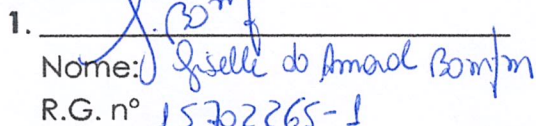 1.
Nome: Giselle do Amaral Bomfim
R.G. nº 15702265-1